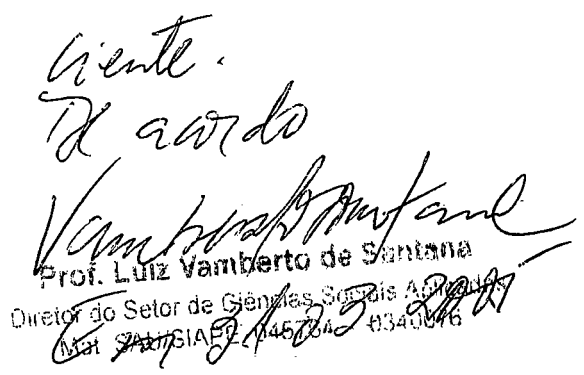 Ciente.
De acordo
Vamberto Santana
Prof. Luiz Vamberto de Santana
Diretor do Setor de Ciências Sociais Aplicadas
Mat. SIAPE
Em